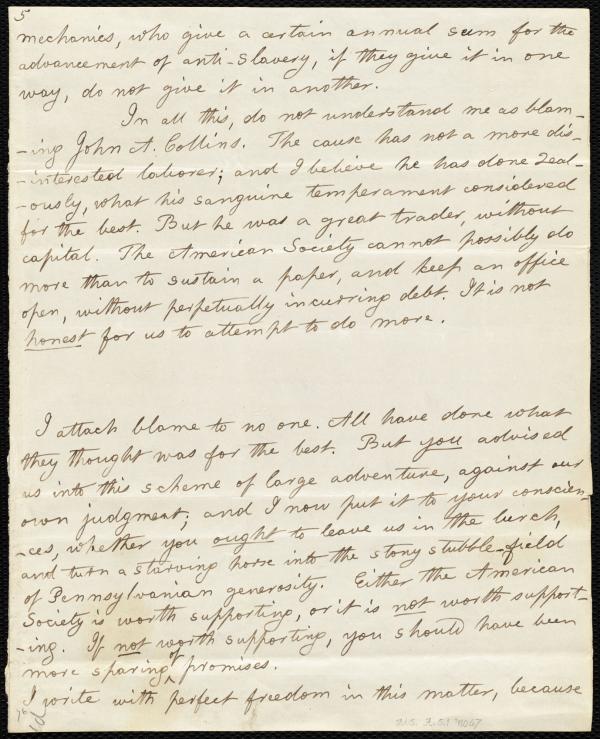 5
mechanics, who give a certain annual sum for the
advancement of anti-slavery, if they give it in one
way, do not give it in another.
In all this, do not understand me as blam-
-ing John A. Collins. The cause has not a more dis-
-interested laborer; and I believe he has done zeal-
-ously, what his sanguine temperament considered
for the best. But he was a great trader, without
capital. The American Society cannot possibly do
more than to sustain a paper, and keep an office
open, without perpetually incurring debt. It is not
honest for us to attempt to do more.
I attach blame to no one. All have done what
they thought was for the best. But you advised
us into this scheme of large adventure, against our
own judgment; and I now put it to your conscien-
-ces, whether you ought to leave us in the lurch,
and turn a starving horse into the stony stubble-field
of Pennsylvanian generosity. Either the American
Society is worth supporting, or it is not worth support-
-ing. If not worth supporting, you should have been
more sparing of promises.
I write with perfect freedom in this matter, because